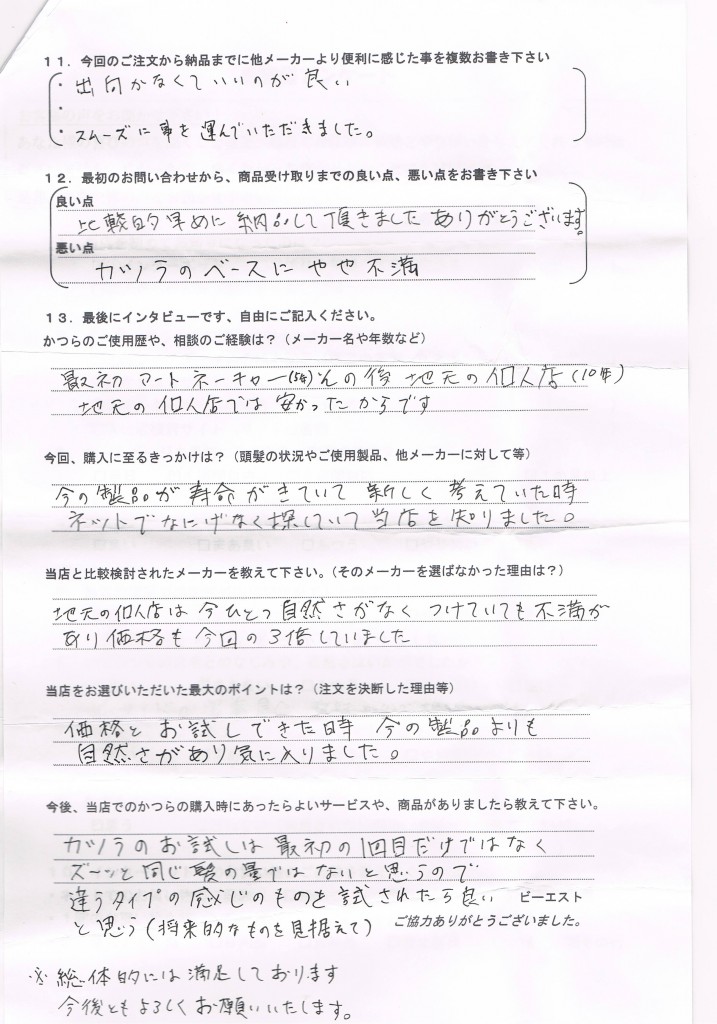 11.今回のご注文から納品までに他メーカーより便利に感じた事を複数お書き下さい
・出向かなくていいのが良い
・
・スムーズに事を運んでいただきました。
12.最初のお問い合わせから、商品受け取りまでの良い点、悪い点をお書き下さい
良い点
比較的早めに納品して頂きましたありがとうございます。
悪い点
カツラのベースにやや不満
13.最後にインタビューです、自由にご記入ください。
かつらのご使用歴や、相談のご経験は?(メーカー名や年数など)
最初 アートネーチャー(5年)その後 地元の個人店(10年)
地元の個人店では安かったからです
今回、購入に至るきっかけは?(頭髪の状況やご使用製品、他メーカーに対して等)
今の製品が寿命がきていて 新しく考えていた時
ネットでなにげなく探していて当店を知りました。
当店と比較検討されたメーカーを教えて下さい。(そのメーカーを選ばなかった理由は?)
地元の個人店は今ひとつ自然さがなく つけていても不満が
あり価格も今回の3倍していました
当店をお選びいただいた最大のポイントは?(注文を決断した理由等)
価格と お試しできた時 今の製品よりも
自然さがあり気に入りました。
今後、当店でのかつらの購入時にあったらよいサービスや、商品がありましたら教えて下さい。
カツラのお試しは最初の1回目だけではなく
ズーンと同じ髪の量ではないと思うので
違うタイプの感じのものを試されたら良い ピーエスト
と思う(将来的なものを見据えて) ご協力ありがとうございました。
※ 総体的には満足しております
今後ともよろしくお願いいたします。